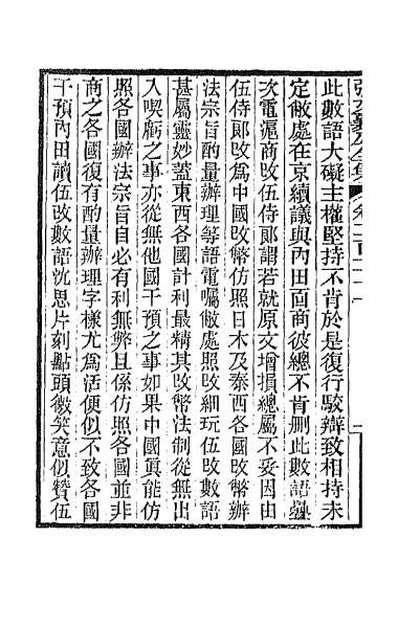 張文襄公全集
此數語大礙主權堅持不肯於是復行駁辯致相持未
定敝處在京續議與內田面商彼總不肯刪此數語疊
次電滬商改伍侍郞謂若就原文增損總屬不妥因由
伍侍郞改爲中國改幣仿照日本及泰西各國改幣辦
法宗旨酌量辦理等語電囑敝處照改細玩伍改數語
甚屬靈妙蓋東西各國計利最精其改幣法制從無出
入喫虧之事亦從無他國干預之事如果中國眞能仿
照各國辦法宗旨自必有利無弊且係仿照各國並非
商之各國復有酌量辦理字樣尤爲活便似不致各國
干預內田讀伍改數語沈思片刻點頭微笑意似贊伍